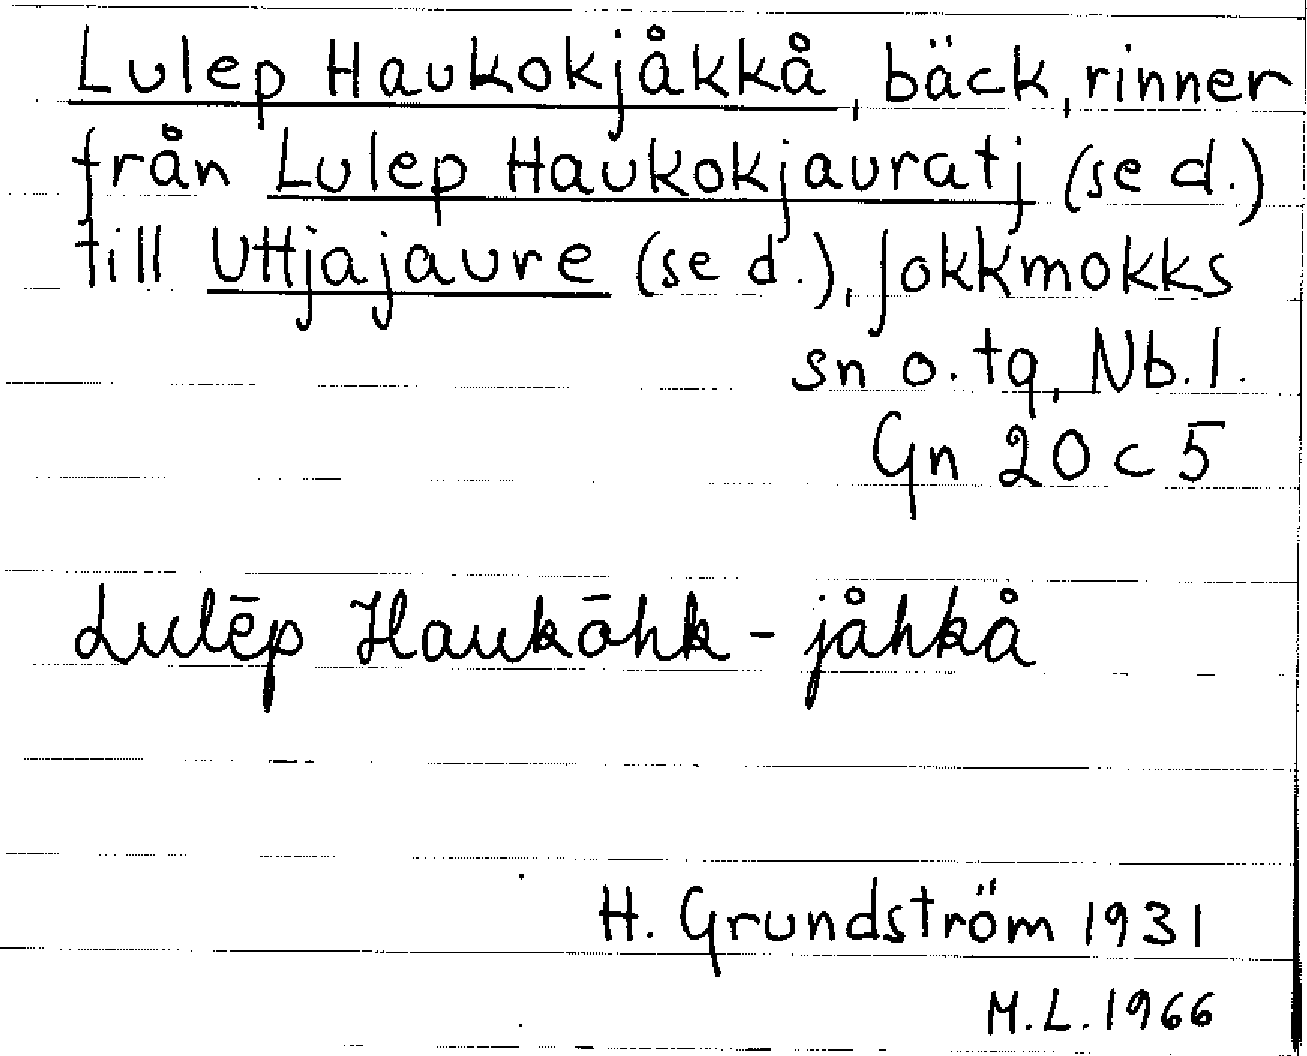 Lulep Haukokjåkkå, bäck, rinner
från Lulep Haukokjauratj (se d.)
till Uttjajaure (se d.), Jokkmokks
sn o. tg, Nb. l.
Gn 20 c 5
Lulēp Haukōhk-jåhkå
H. Grundström 1931
M.L. 1966